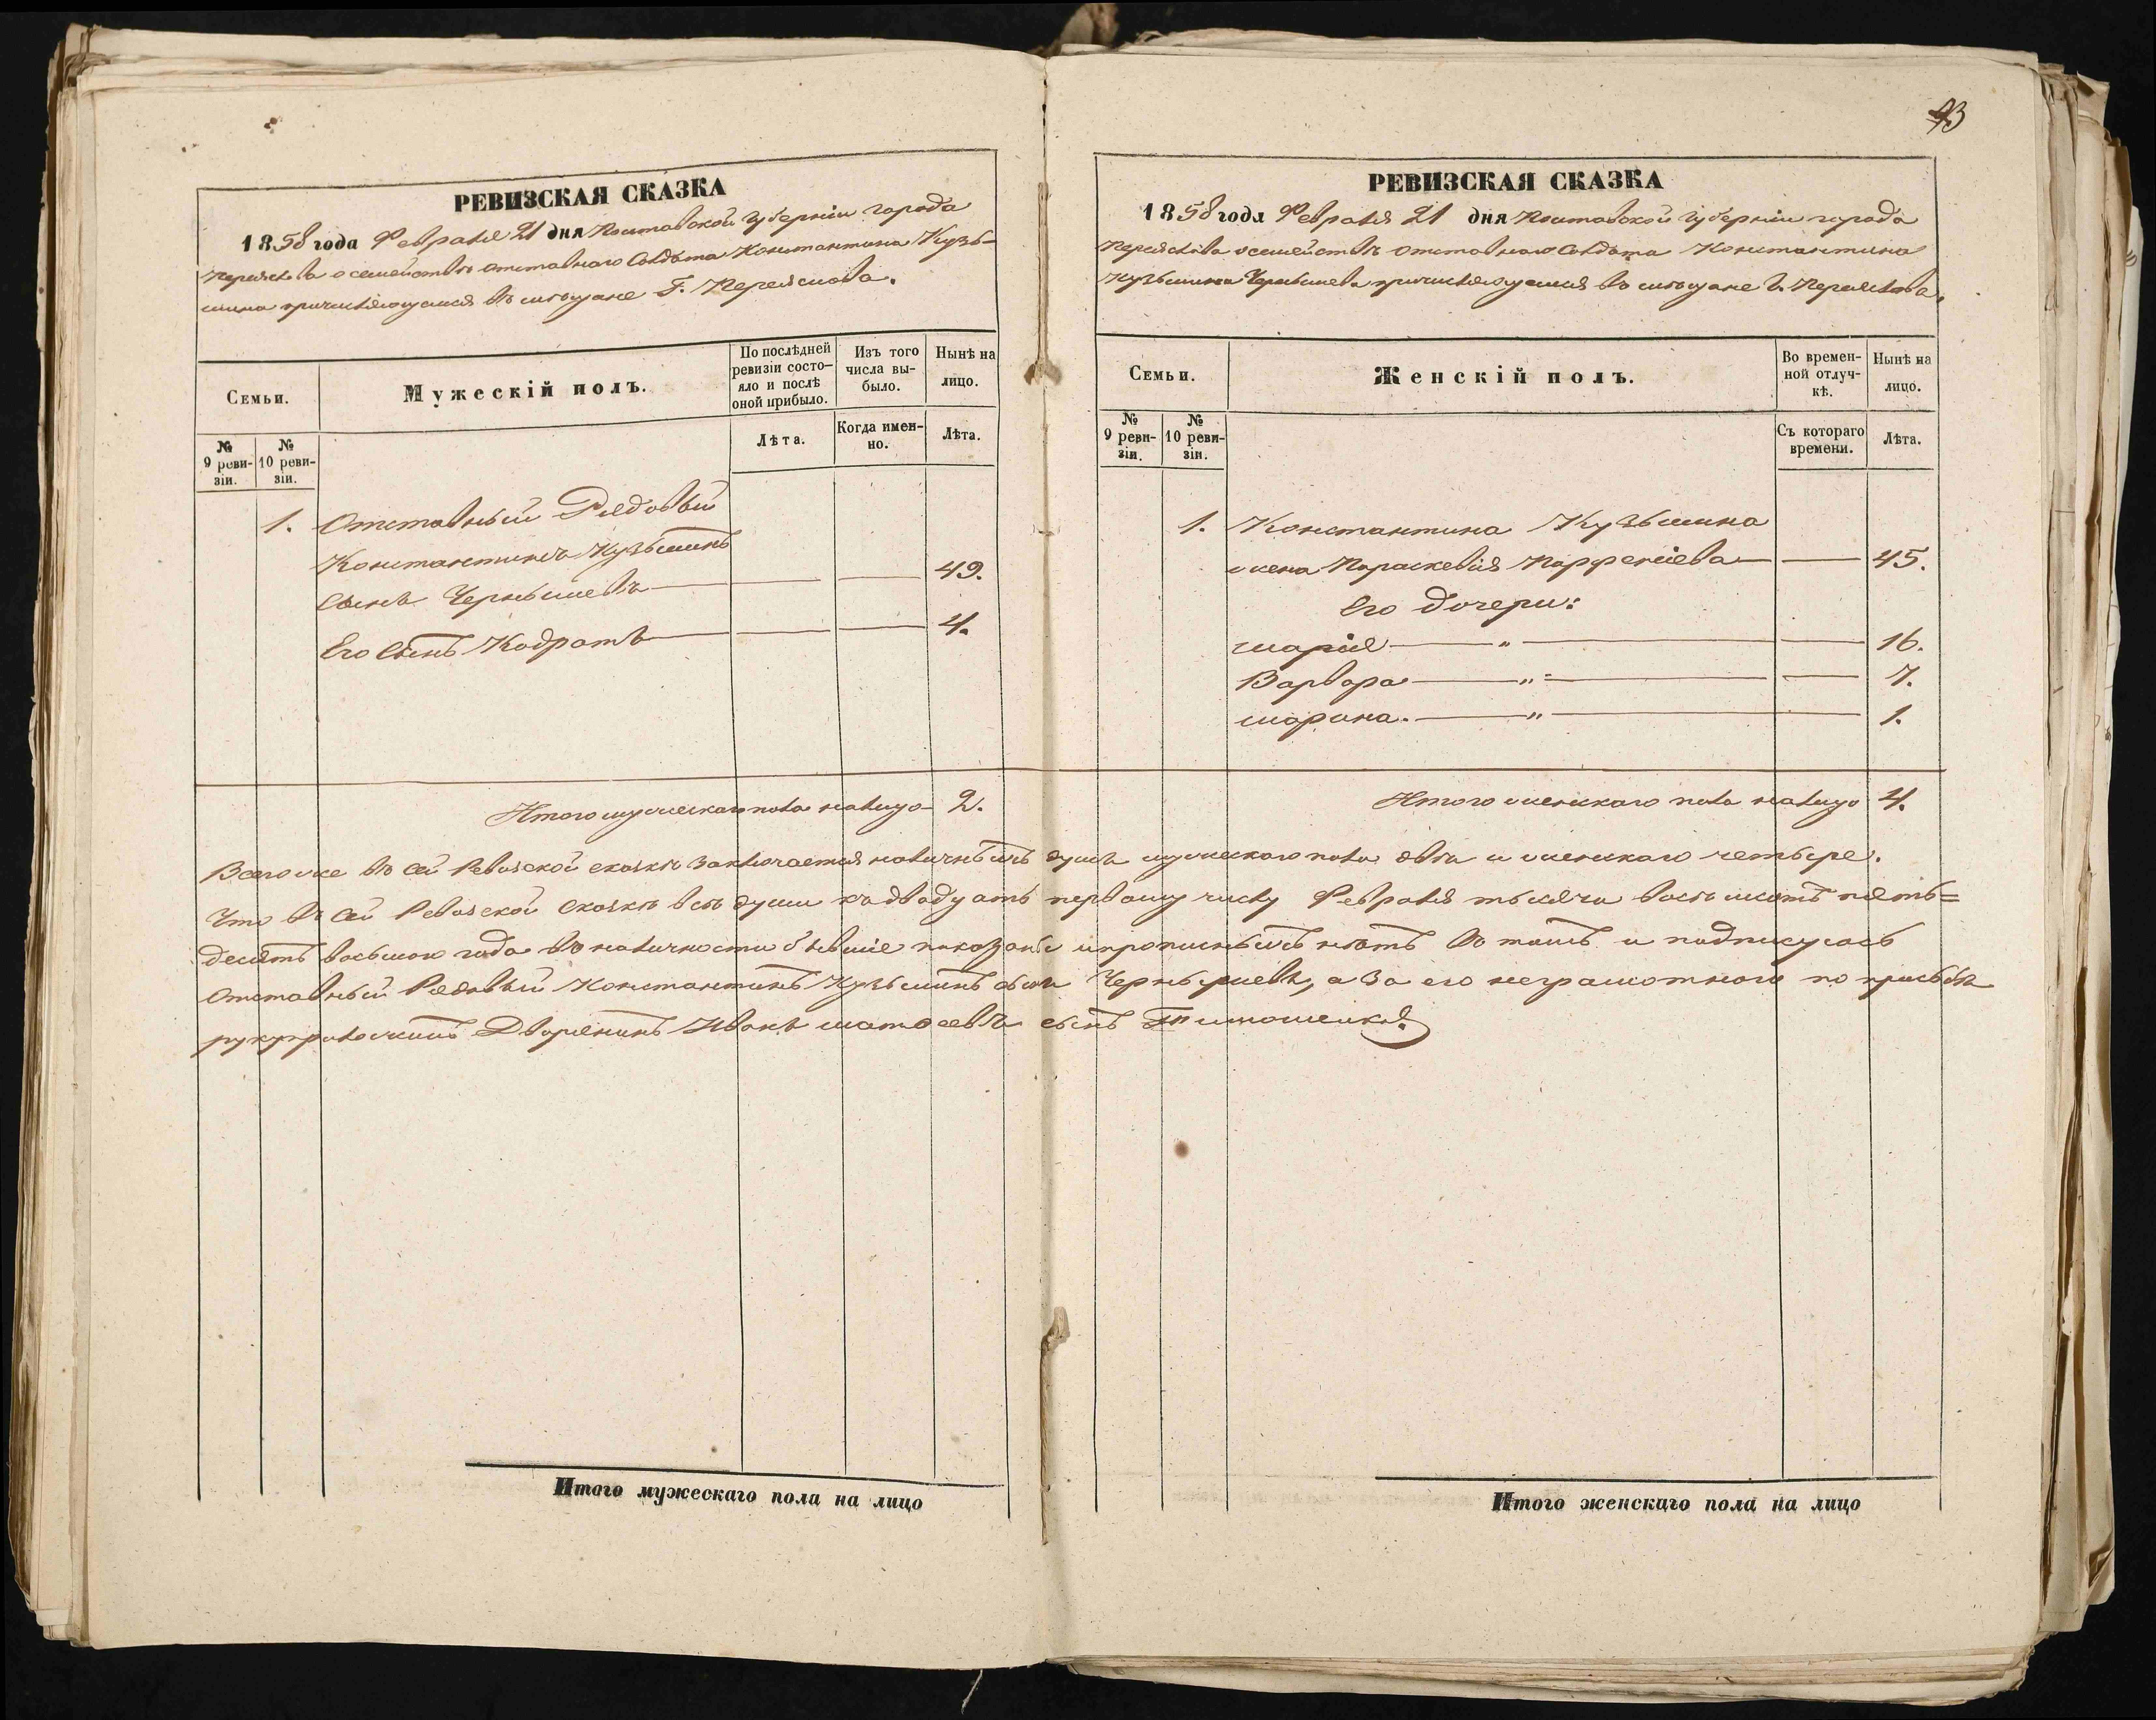 93
РЕВИЗСКАЯ СКАЗКА
1858 года Февраля 21 дня Полтавской губерніи города
Переяслова о семействѣ отставнаго Солдата Константина Кузь-
мина причисляющемся въ мѣщане Г. Переяслова.
Семьи.
Мужескій полъ.
По послѣдней ревизіи состо-
яло и послѣ оной прибыло.
Изъ того числа вы-
было.
Нынѣ на лицо.
№ 9 реви-
зіи.
№ 10 реви-
зіи.
Лѣта.
Когда имен-
но.
Лѣта.
1. Отставный Рядовый
Константинъ Кузьминъ
сынъ Чернышевъ 49.
Его сынъ Кодратъ 4.
Итого мужескаго пола налицо 2.
РЕВИЗСКАЯ СКАЗКА
1858 года Февраля 21 дня Полтавской губерніи города
Переяслова о семействѣ отставнаго Солдата Константина
Кузьмина Чернышева причисляющемся въ мѣщане г. Переяслова.
Семьи.
Женскій полъ.
Во времен-
ной отлуч-
кѣ.
Нынѣ на лицо.
№ 9 реви-
зіи.
№ 10 реви-
зіи.
Съ котораго времени.
Лѣта.
1. Константина Кузьмина
жена Параскевія Парфеніева 45.
Его дочери:
Марія " 16.
Варвара " 7.
Марина. " 1.
Итого женскаго пола налицо 4.
Всего же въ сей Ревизской сказкѣ заключается наличныхъ душъ мужескаго пола двѣ и женскаго четыре.
Что въ сей Ревизской сказкѣ всѣ души къ двадцать первому числу Февраля тысяча восемьсотъ пять=
десятъ восьмого года въ наличности бывшіе показаны и прописныхъ нѣтъ въ томъ и подписуюсь
Отставный Рядовый Константинъ Кузьминъ сынъ Чернышевъ, а за его неграмотного по просьбѣ
руку приложилъ Дворянинъ Иванъ Матвеевъ сынъ Тимошенко.
Итого мужескаго пола на лицо
Итого женскаго пола на лицо